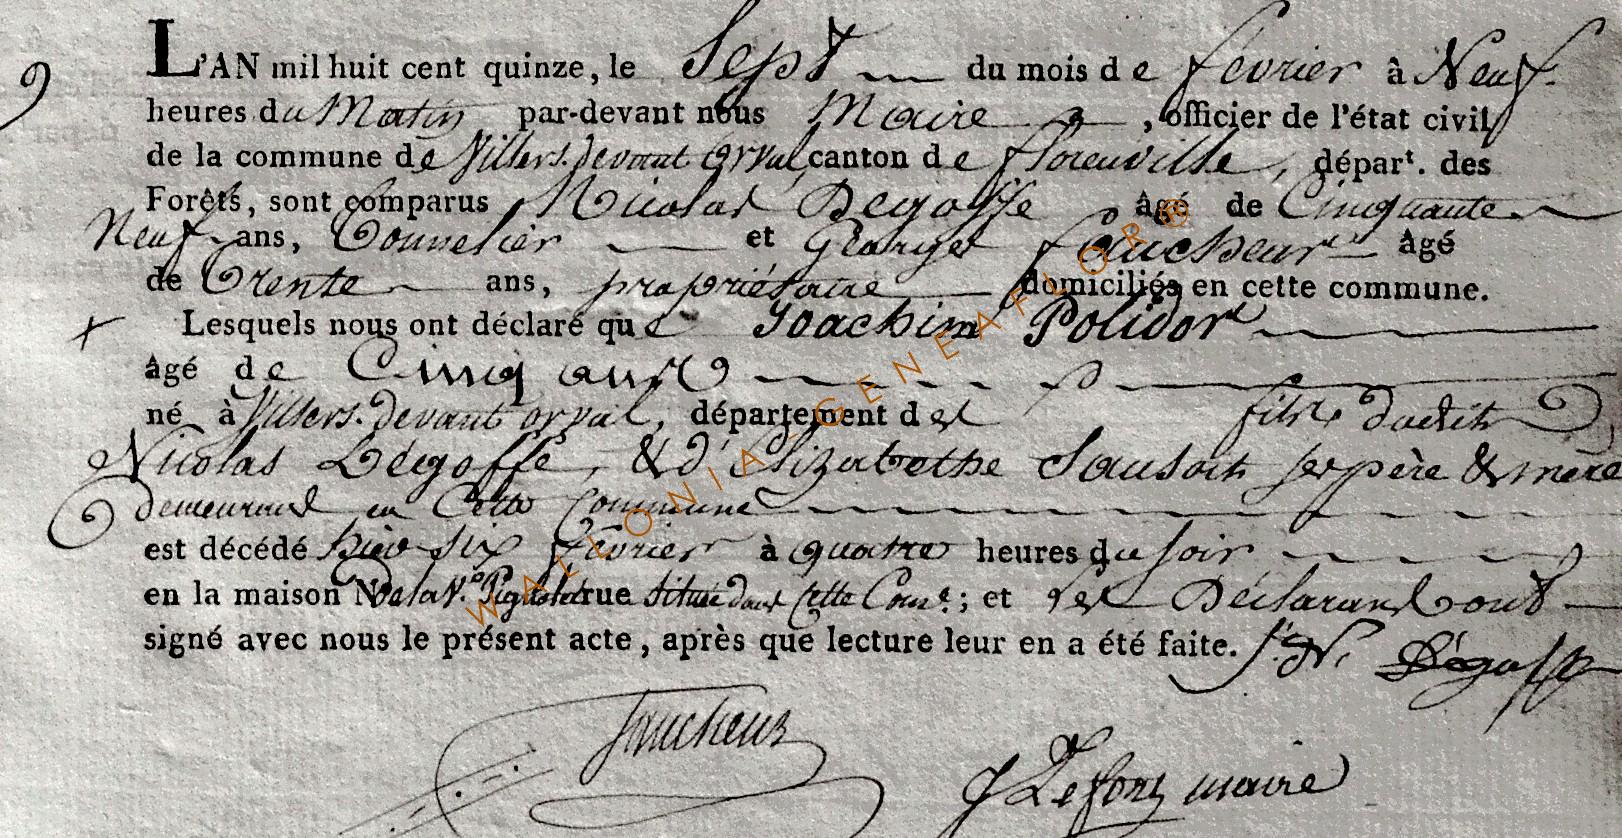 9
L'AN mil huit cent quinze, le Sept du mois de fevrier à Neuf
heures du Matin par-devant nous Maire, officier de l'état civil
de la commune de Villers devant orval, canton de florenville, départ. des
Forêts, sont comparus Nicolas Degoffe âgé de Cinquante
Neuf ans, et George faucheur âgé
de Trente ans, propriétaire domiciliés en cette commune.
Lesquels nous ont déclaré que Joachim Polidor
âgé de Cinq ans
né à Villers devant orval, département des fils dudit
Nicolas Dégoffe, & d'Elizabethe Sausoit ses père & mère
demeurant en Cette Commune
est décédé hier six février à quatre heures du soir
en la maison N de la V.e rue située dans Cette Com.e; et Les Déclarans ont
signé avec nous le présent acte, après que lecture leur en a été faite. J. N. Dégoffe
faucheur
J Lefort maire
WALLONIA-GENEAFLOR®